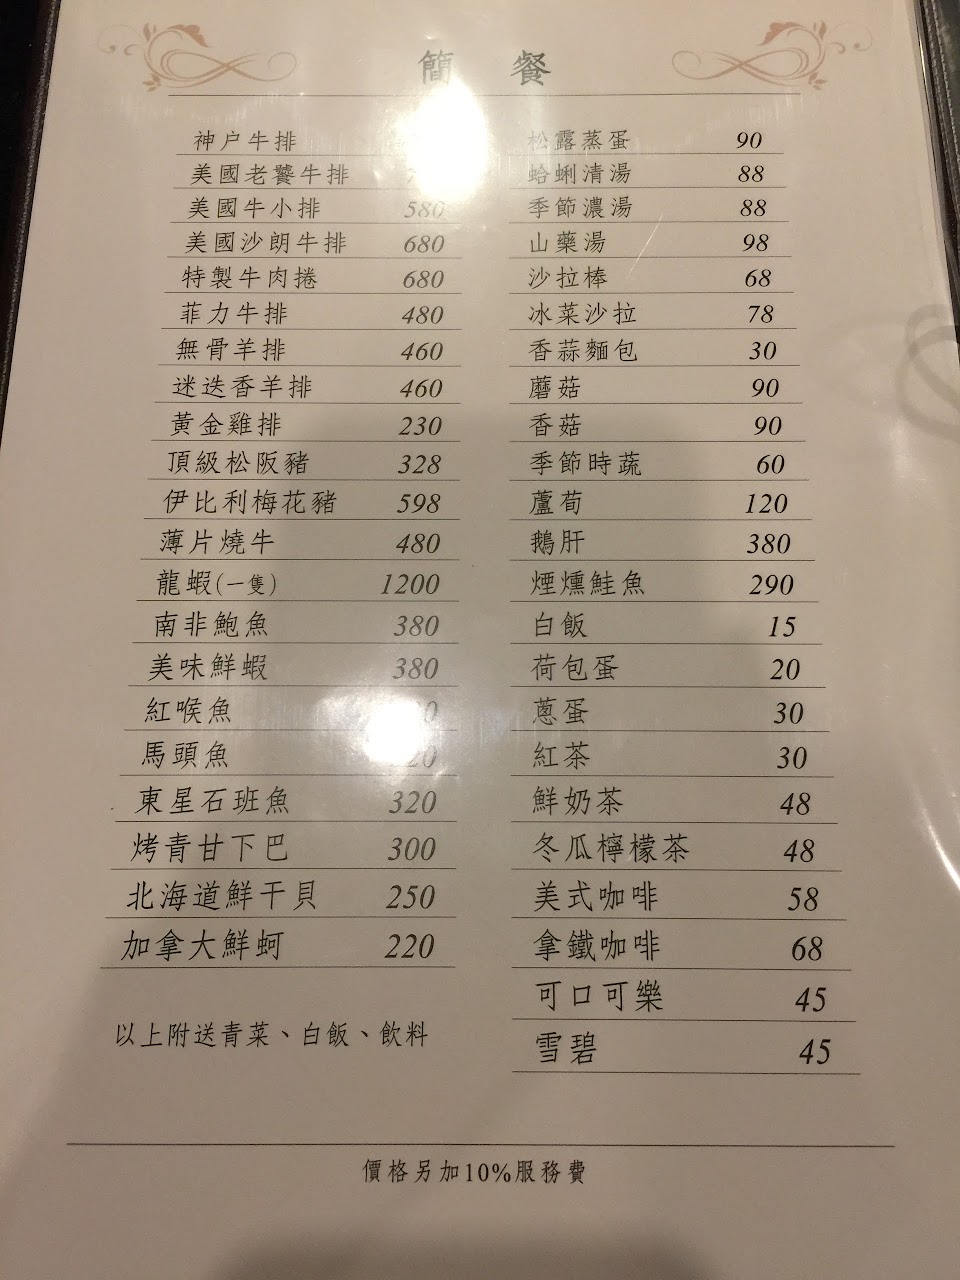 簡 餐
神户牛排
美國老饕牛排
美國牛小排 580
美國沙朗牛排 680
特製牛肉捲 680
菲力牛排 480
無骨羊排 460
迷迭香羊排 460
黃金雞排 230
頂級松阪豬 328
伊比利梅花豬 598
薄片燒牛 480
龍蝦(一隻) 1200
南非鮑魚 380
美味鮮蝦 380
紅喉魚
馬頭魚
東星石班魚 320
烤青甘下巴 300
北海道鮮干貝 250
加拿大鮮蚵 220
以上附送青菜、白飯、飲料
松露蒸蛋 90
蛤蜊清湯 88
季節濃湯 88
山藥湯 98
沙拉棒 68
冰菜沙拉 78
香蒜麵包 30
蘑菇 90
香菇 90
季節時蔬 60
蘆荀 120
鵝肝 380
煙燻鮭魚 290
白飯 15
荷包蛋 20
蔥蛋 30
紅茶 30
鮮奶茶 48
冬瓜檸檬茶 48
美式咖啡 58
拿鐵咖啡 68
可口可樂 45
雪碧 45
價格另加10%服務費